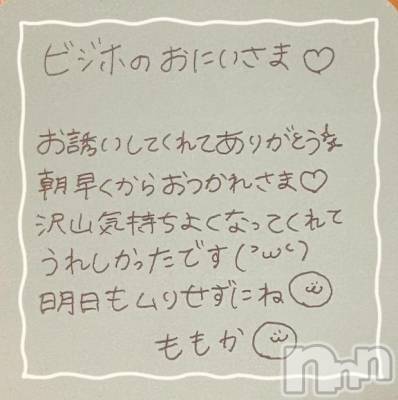 ビジホのおにいさま♡
お誘いしてくれてありがとう☆
朝早くからおつかれさま♡
沢山気持ちよくなってくれて
うれしかったです(´ω`)
明日もムリせずにね
ももか